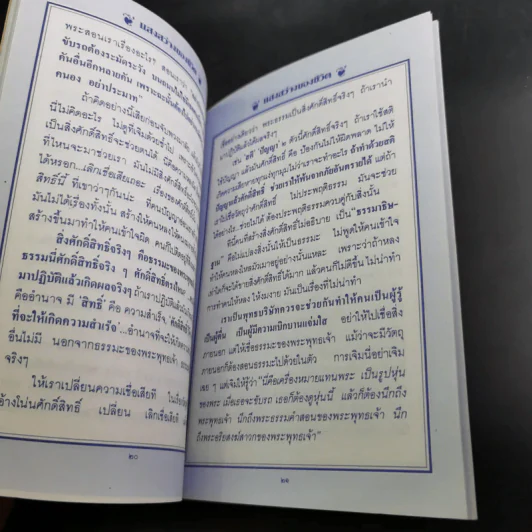 แสงสว่างของชีวิต
พระสอนเราเรื่องอะไร? สอนเราว่า
ขับรถต้องระมัดระวัง บนถนน
คันอื่นอีกหลายคัน เพราะฉะนั้น
คนอง อย่าประมาท"
ถ้าคิดอย่างนี้เสียก่อนจับพวงมาลัย
นี่ไม่คิดอะไร ไม่ดูที่เจิมด้วยซ้ำไป
เป็นสิ่งศักดิ์สิทธิ์จะช่วยตนได้ นี่คือความ
ที่ไหนจะมาช่วยเรา มันไม่มีสิ่งศักดิ์สิทธิ์
ได้หรอก...เลิกเชื่อเสียเถอะ เรื่องของ
สิทธิ์นี้ ที่เขาว่าๆกันน่ะ ที่คนปัญญา
มันไม่ได้เรื่องทั้งนั้น สร้างให้คนหลง
สร้างขึ้นมาทำให้คนเข้าใจผิด คนก็
สิ่งศักดิ์สิทธิ์จริงๆ คือธรรมะของพระ
ธรรมนี่ศักดิ์สิทธิ์จริง ๆ ศักดิ์สิทธิ์ตรงไหน
มาปฏิบัติแล้วเกิดผลจริงๆ ถ้าเราปฏิบัติ
คืออำนาจ มี 'สิทธิ์' คือ ความสำเร็จ
ที่จะให้เกิดความสำเร็จ'...อำนาจที่จะให้
อื่นไม่มี นอกจากธรรมะของพระพุทธเจ้า
จริงๆ
ให้เราเปลี่ยนความเชื่อเสียที ในเรื่อง
อ้างโน่นศักดิ์สิทธิ์ เปลี่ยน เลิกเชื่อเสียที
๒๐
แสงสว่างของชีวิต
พระธรรมเป็นสิ่งศักดิ์สิทธิ์จริงๆ ถ้าเรานำ
มาปฏิบัติแล้วได้ผลจริงๆ
เช่น 'สติ' 'ปัญญา' นี่ ตัวนี้ศักดิ์สิทธิ์จริงๆ ถ้าเราใช้สติ
ใช้ปัญญา แล้วเป็นศักดิ์สิทธิ์ คือ ป้องกันไม่ให้ผิดพลาด ไม่ให้
เกิดความเสียหายทุกแง่ทุกมุมไม่ว่าเราจะทำอะไร ถ้าทำด้วยสติ
ปัญญาแล้วศักดิ์สิทธิ์ ช่วยเราให้พ้นจากภัยอันตรายได้ แต่ถ้า
เราไปเชื่อวัตถุว่าศักดิ์สิทธิ์ ไม่ประพฤติธรรม มันจะช่วย
ได้อย่างไร, ช่วยไม่ได้ ต้องประพฤติธรรมควบคู่กับสิ่งนั้น
นี่คนที่สร้างสิ่งศักดิ์สิทธิ์ไม่อธิบาย เป็น "ธรรมาธิษ-
ฐาน" คือไม่แปลงสิ่งนั้นให้เป็นธรรมะ ไม่พูดให้คนเข้าใจ
ยิ่งทำให้คนหลงใหลมัวเมาอยู่อย่างนั้นแหละ เพราะว่าถ้าหลง
เท่าใดก็จะได้ขายสิ่งศักดิ์สิทธิ์ได้มาก แล้วคนก็ไม่ดีขึ้น ไม่น่าทำ
การทำคนให้หลง ให้งมงาย มันเป็นเรื่องที่ไม่น่าทำ
เราเป็นพุทธบริษัทควรจะช่วยกันทำให้คนเป็นผู้รู้
เป็นผู้ตื่น เป็นผู้มีความเบิกบานแจ่มใส อย่าให้ไปเชื่อสิ่ง
ภายนอก แต่ให้เชื่อธรรมะของพระพุทธเจ้า แม้ว่าจะมีวัตถุ
ภายนอกก็ต้องสอนธรรมะไปด้วยในตัว การเจิมนี่อย่าเจิม
เฉย ๆ แต่เจิมให้รู้ว่า "นี่คือเครื่องหมายแทนพระ เป็นรูปหุ่น
ของพระ เมื่อเธอจะขับรถ เธอก็ต้องดูหุ่นนี้ แล้วก็ต้องนึกถึง
พระพุทธเจ้า นึกถึงพระธรรมคำสอนของพระพุทธเจ้า นึก
ถึงพระอริยสงฆ์สาวกของพระพุทธเจ้า"
๒๑